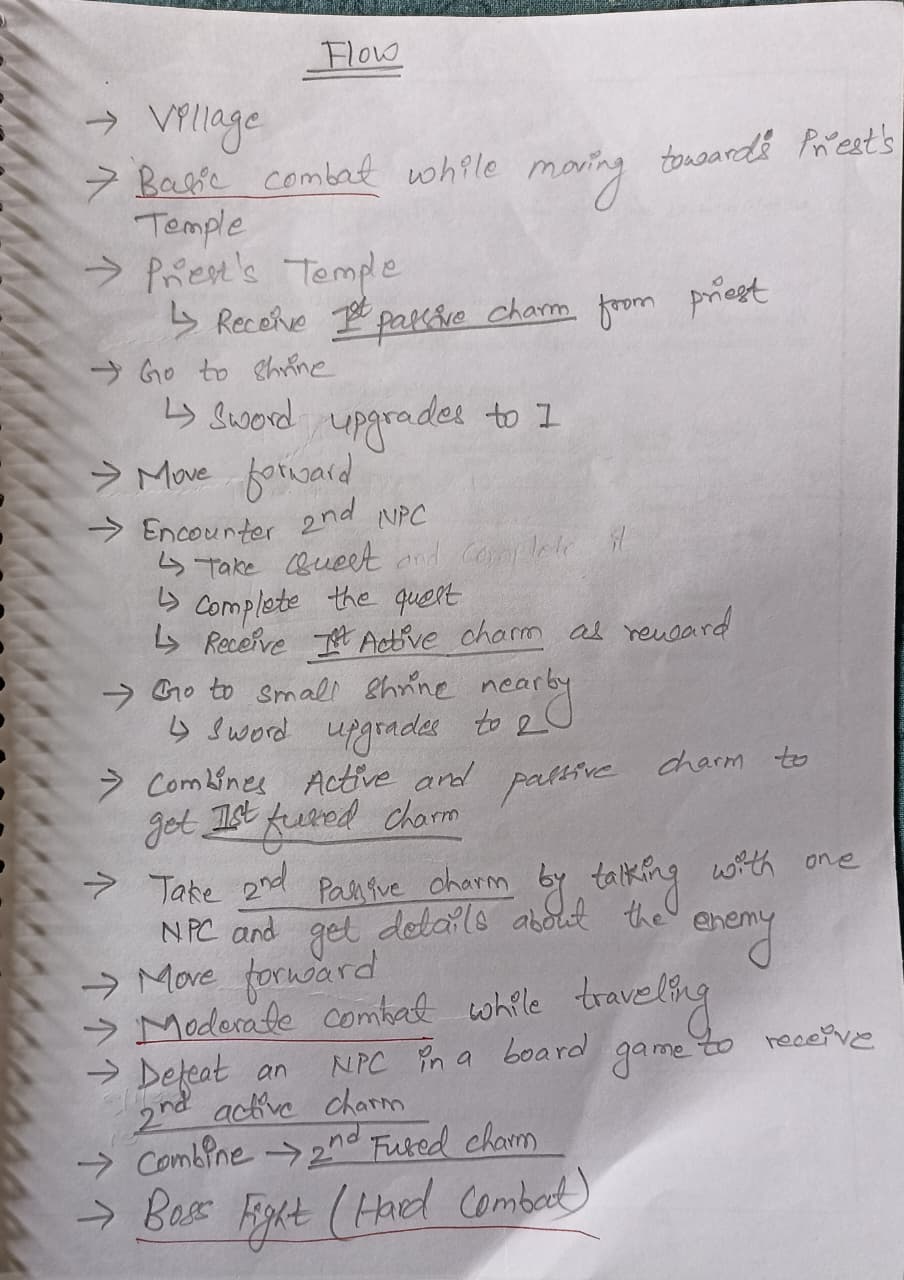 Flow
→ Village
→ Basic combat while moving towards Priest's
Temple
→ Priest's Temple
↳ Receive 1st passive charm from priest
→ Go to shrine
↳ Sword upgrades to 1
→ Move forward
→ Encounter 2nd NPC
↳ Take Quest and complete it
↳ Complete the quest
↳ Receive 1st Active charm as reward
→ Go to small shrine nearby
↳ Sword upgrades to 2
→ Combines Active and passive charm to
get 1st fused charm
→ Take 2nd Passive charm by talking with one
NPC and get details about the enemy
→ Move forward
→ Moderate combat while traveling
→ Defeat an NPC in a board game to receive
2nd active charm
→ Combine → 2nd Fused charm
→ Boss Fight (Hard Combat)